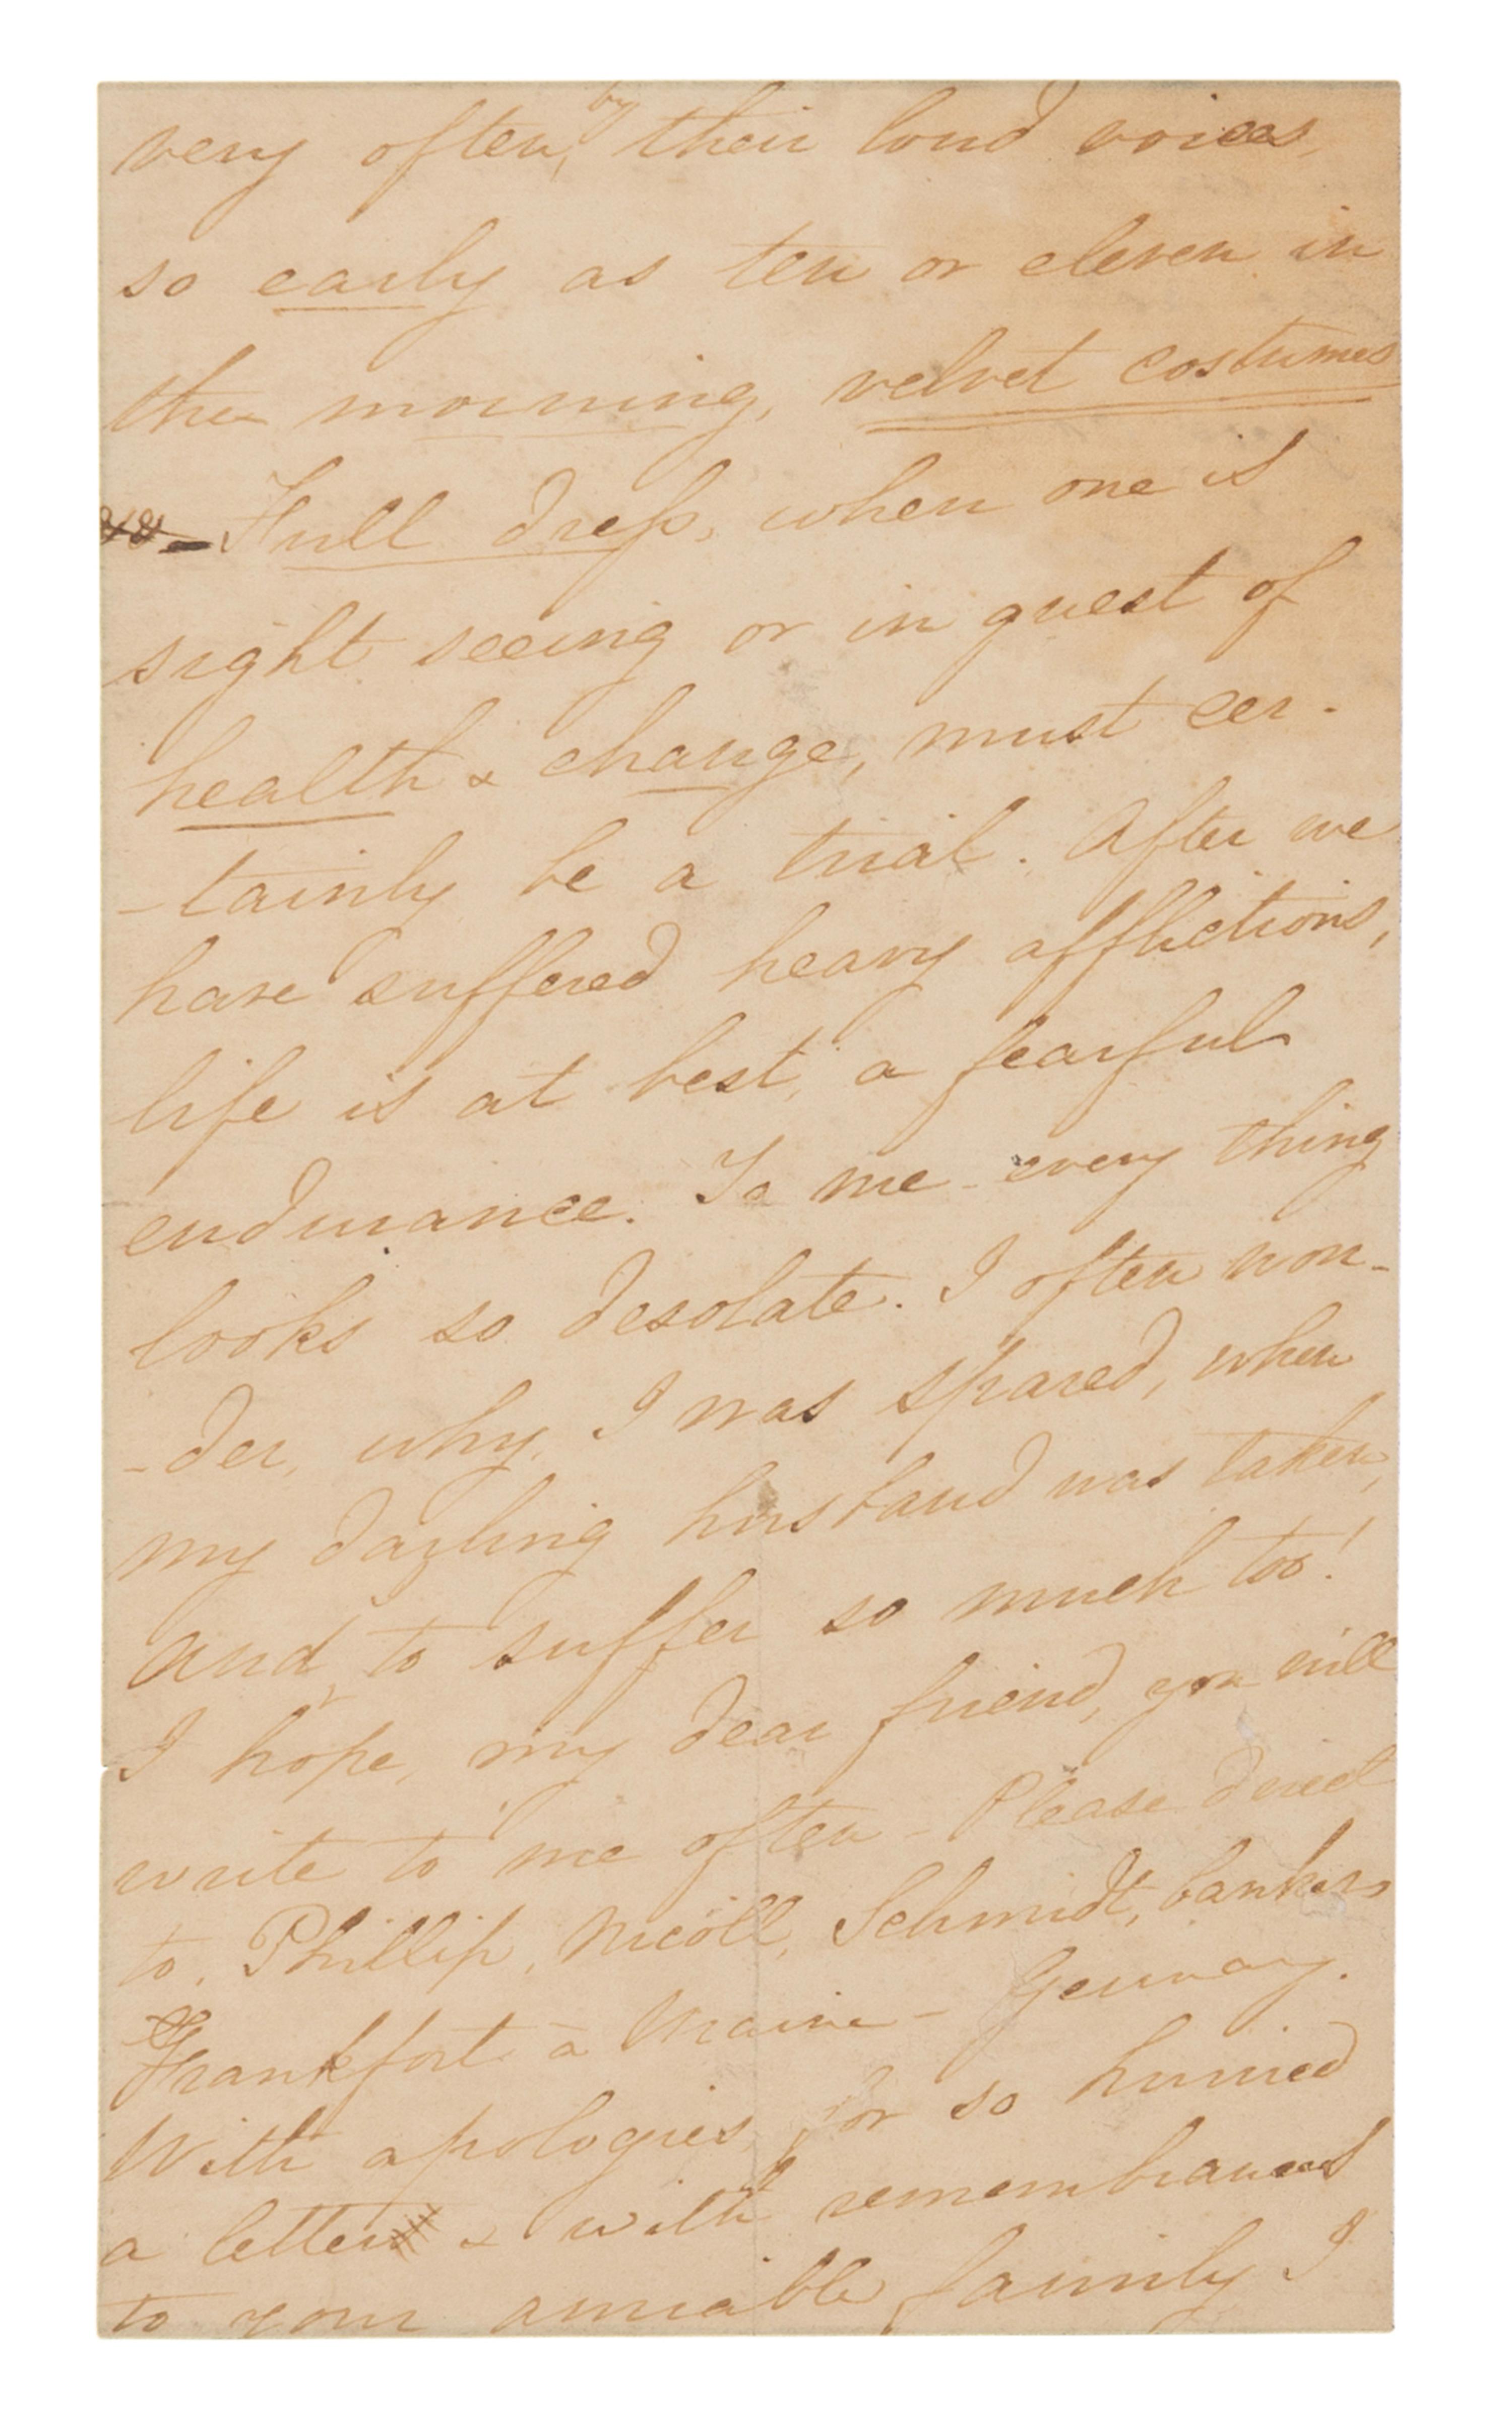 very often, by their loud voices,
so early as ten or eleven in
the morning, velvet costumes
Full dress, when one is
sight seeing or in quest of
health & change, must cer-
-tainly be a trial. After we
have suffered heavy afflictions,
life is at best, a fearful
endurance. To me - every thing
looks so desolate. I often won-
-der, why, I was spared, when
my darling husband was taken,
and, to suffer so much too!
I hope, my dear friend, you will
write to me often - Please direct
to, Phillip, Nicoll, Schmidt, bankers
Frankfort a Maine - Germany.
With apologies, for so hurried
a letter & with remembrances
to your amiable family I